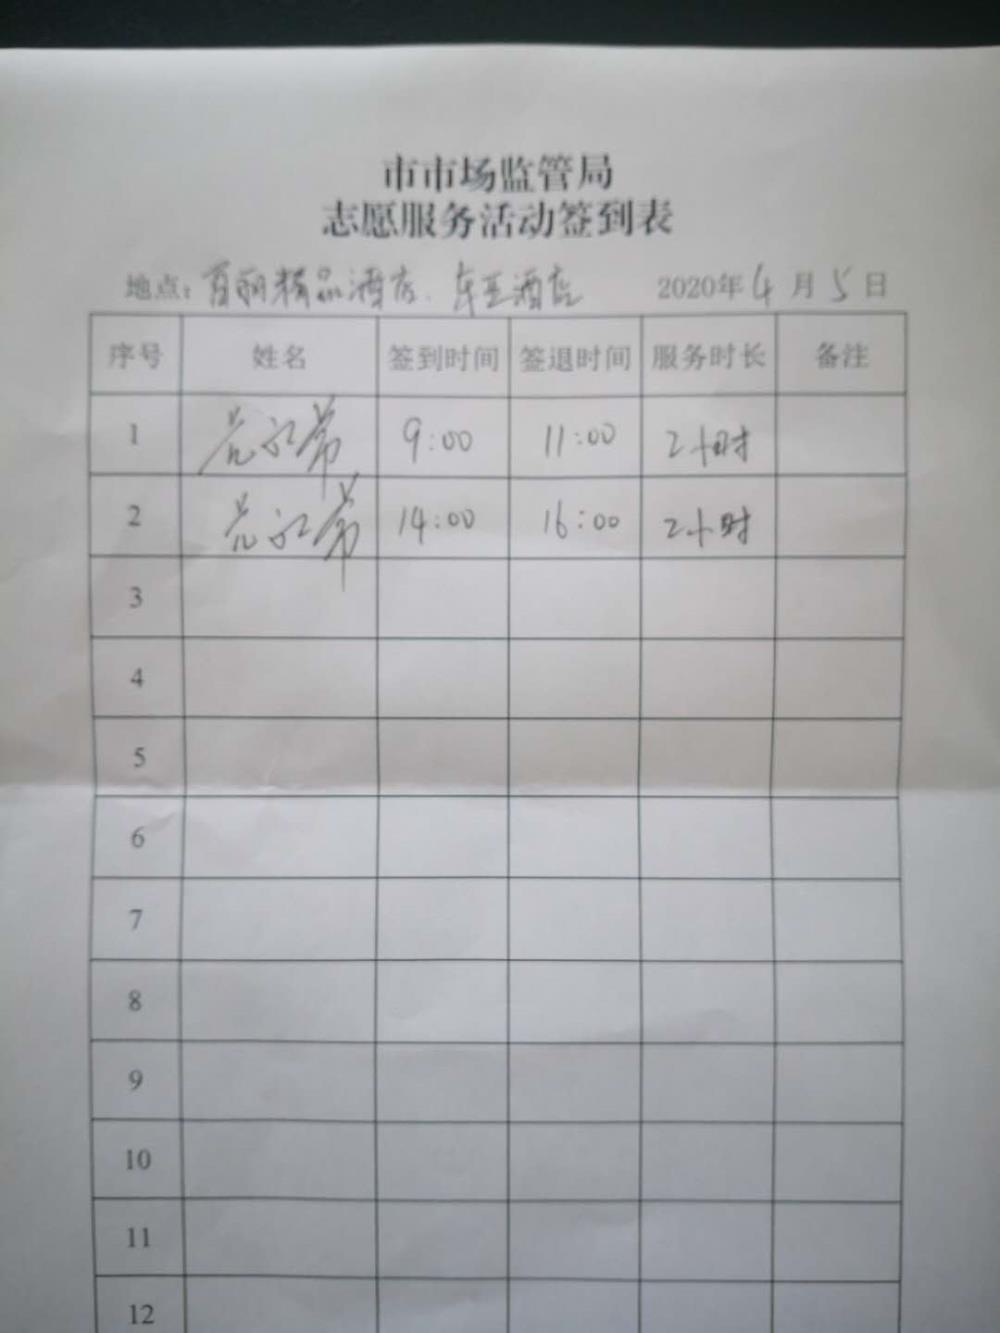 市市场监管局
志愿服务活动签到表
地点: 精品酒店、东亚酒店 2020年4月5日
序号 姓名 签到时间 签退时间 服务时长 备注
1 9:00 11:00 2小时
2 14:00 16:00 2小时
3
4
5
6
7
8
9
10
11
12